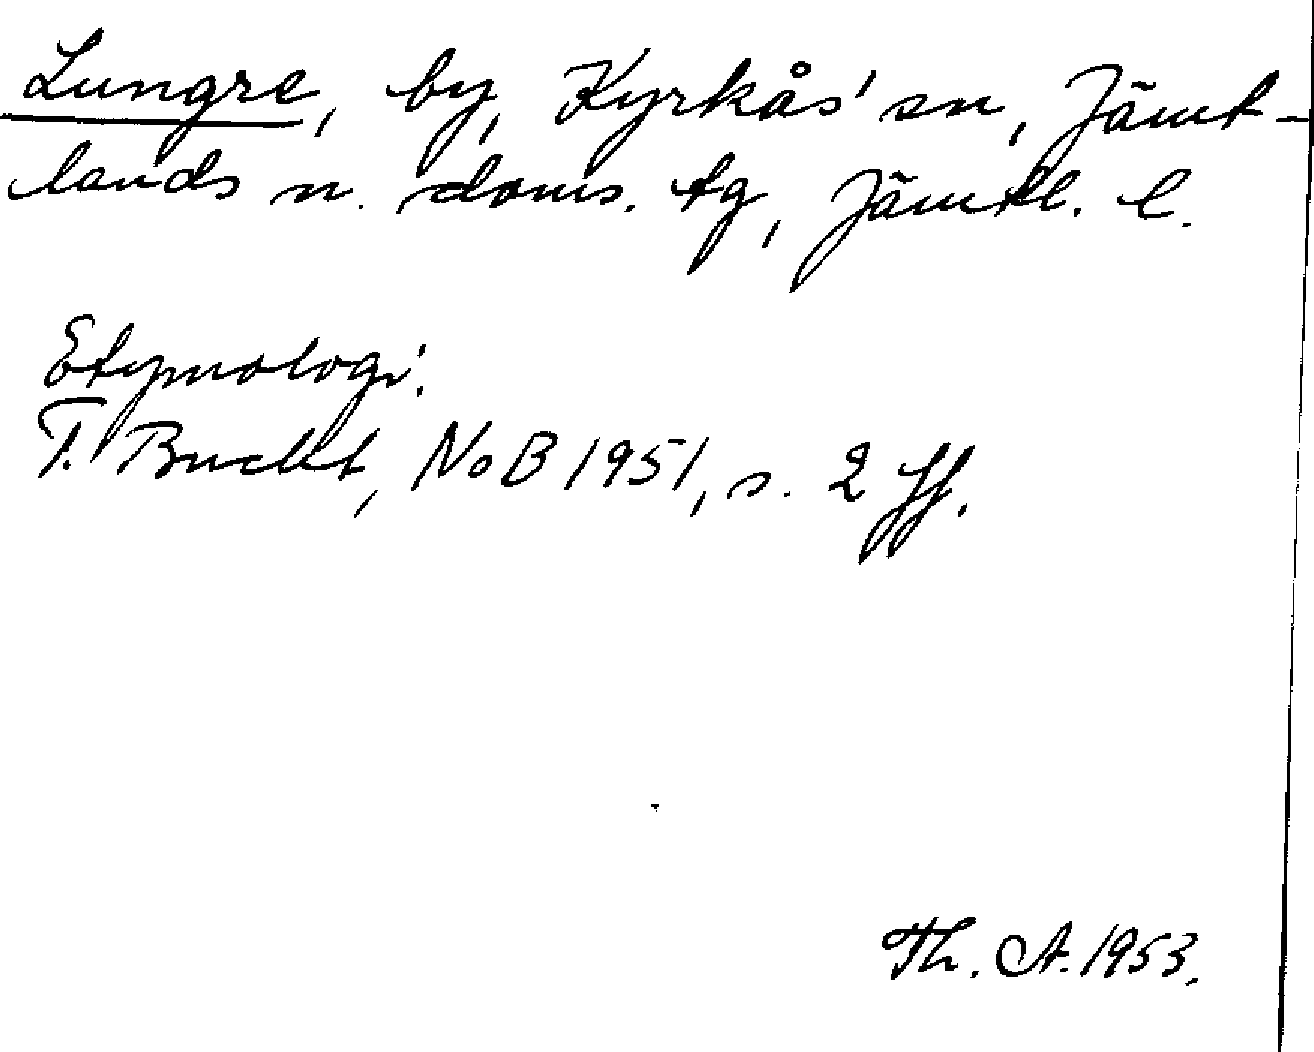 Lungre, by, Kyrkås' sn, Jämt-
lands n. doms. tg, Jämtl. l.
Etymologi:
T. Bucht, NoB 1951, s. 2 ff.
Th. A. 1953.